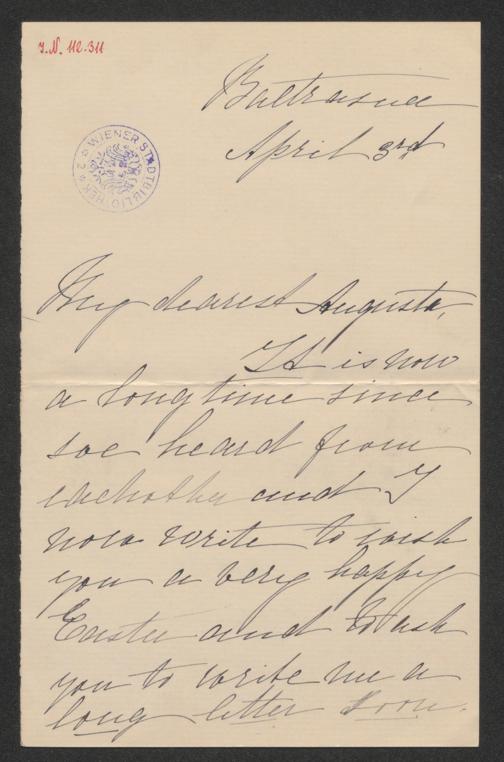 J.N. 112.311
WIENER STADTBIBLIOTHEK
Baltrasna
April 3rd
My dearest Augusta,
It is now
a long time since
we heard from
eachother and I
now write to wish
you a very happy
Easter and to ask
you to write me a
long letter soon.